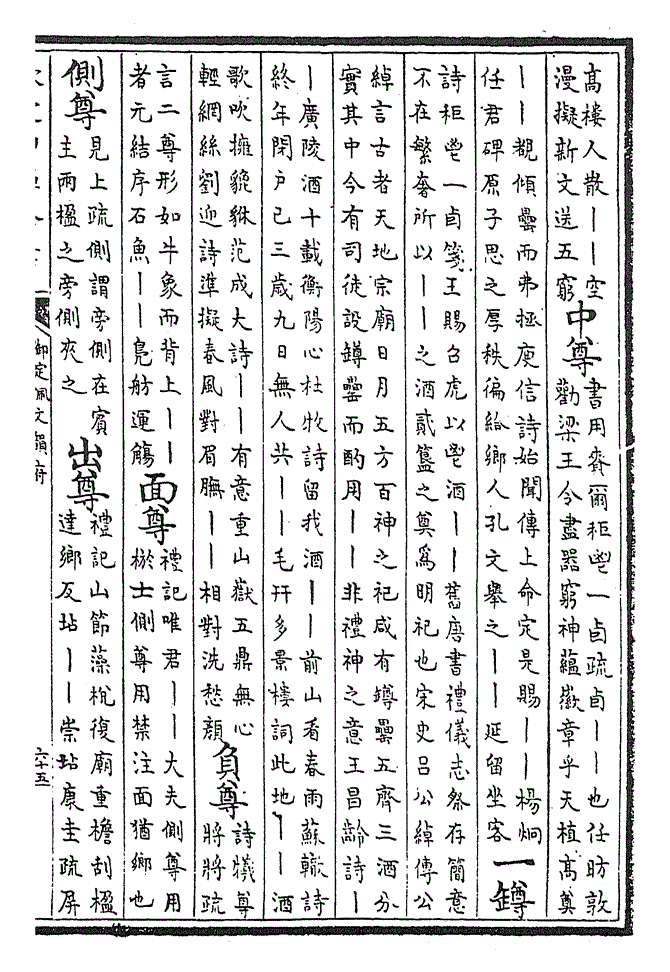 高樓人散｜｜空
漫擬新文送五窮
中尊
書用賚爾秬鬯一卣疏卣｜｜也任昉敦
勸梁王令盡器窮神蘊徽章乎天植高奠
｜｜覩傾罍而弗拯庾信詩始聞傳上命定是賜｜｜楊炯
任君碑原子思之厚秩徧給鄉人孔文舉之｜｜延留坐客
一罇
詩秬鬯一卣箋王賜召虎以鬯酒｜｜舊唐書禮儀志祭存簡意
不在繁奢所以｜｜之酒貳簋之奠爲明祀也宋史呂公綽傳公
綽言古者天地宗廟日月五方百神之祀咸有罇罍五齊三酒分
實其中今有司徒設罇罍而酌用｜｜非禮神之意王昌齡詩｜
｜廣陵酒十載衡陽心杜牧詩留我酒｜｜前山看春雨蘇轍詩
終年閉戸已三歲九日無人共｜｜毛幵多景樓詞此地｜｜酒
歌吹擁貔貅范成大詩｜｜有意重山嶽五鼎無心
輕網絲劉迎詩準擬春風對眉膴｜｜相對洗愁顏
負尊
詩犧尊
將將疏
言二尊形如牛象而背上｜｜
者元結序石魚｜｜鳧舫運觴
面尊
禮記唯君｜｜大夫側尊用
棜士側尊用禁注面猶鄉也
側尊
見上疏側謂旁側在賓
主兩楹之旁側夾之
出尊
禮記山節藻梲復廟重檐刮楹
達鄉反坫｜｜崇坫康圭疏屏
御定佩文韻府
六十五